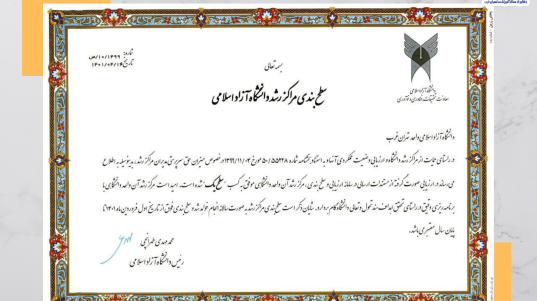 بسمه تعالی
شماره: ۱۰/۱۴۹۹/ص
تاریخ: ۱۴۰۱/۰۴/۱۴
دانشگاه آزاد اسلامی
معاونت تحقیقات، فناوری و نوآوری
سطح بندی مراکز رشد دانشگاه آزاد اسلامی
دانشگاه آزاد اسلامی واحد تهران غرب
در راستای حمایت از مراکز رشد دانشگاه و ارزیابی وضعیت عملکردی آنها و به استناد بخشنامه شماره ۵۰/۵۵۲۲۸ مورخ ۱۳۹۹/۱۱/۰۴ در خصوص میزان حق سرپرستی مدیران مراکز رشد، بدینوسیله به اطلاع
می رساند در ارزیابی صورت گرفته از مستندات ارسالی در سامانه ارزیابی و سطح بندی، مرکز رشد آن واحد دانشگاهی موفق به کسب "سطح یک" شده است. امید است مرکز رشد آن واحد دانشگاهی با
برنامه ریزی دقیق در راستای تحقق اهداف سند تحول و تعالی دانشگاه گام بردارد. شایان ذکر است سطح بندی مراکز رشد به صورت سالانه انجام خواهد شد و سطح بندی فوق از تاریخ اول فروردین ماه ۱۴۰۱ تا
پایان سال معتبر می باشد.
محمد مهدی طهرانچی
رئیس دانشگاه آزاد اسلامی